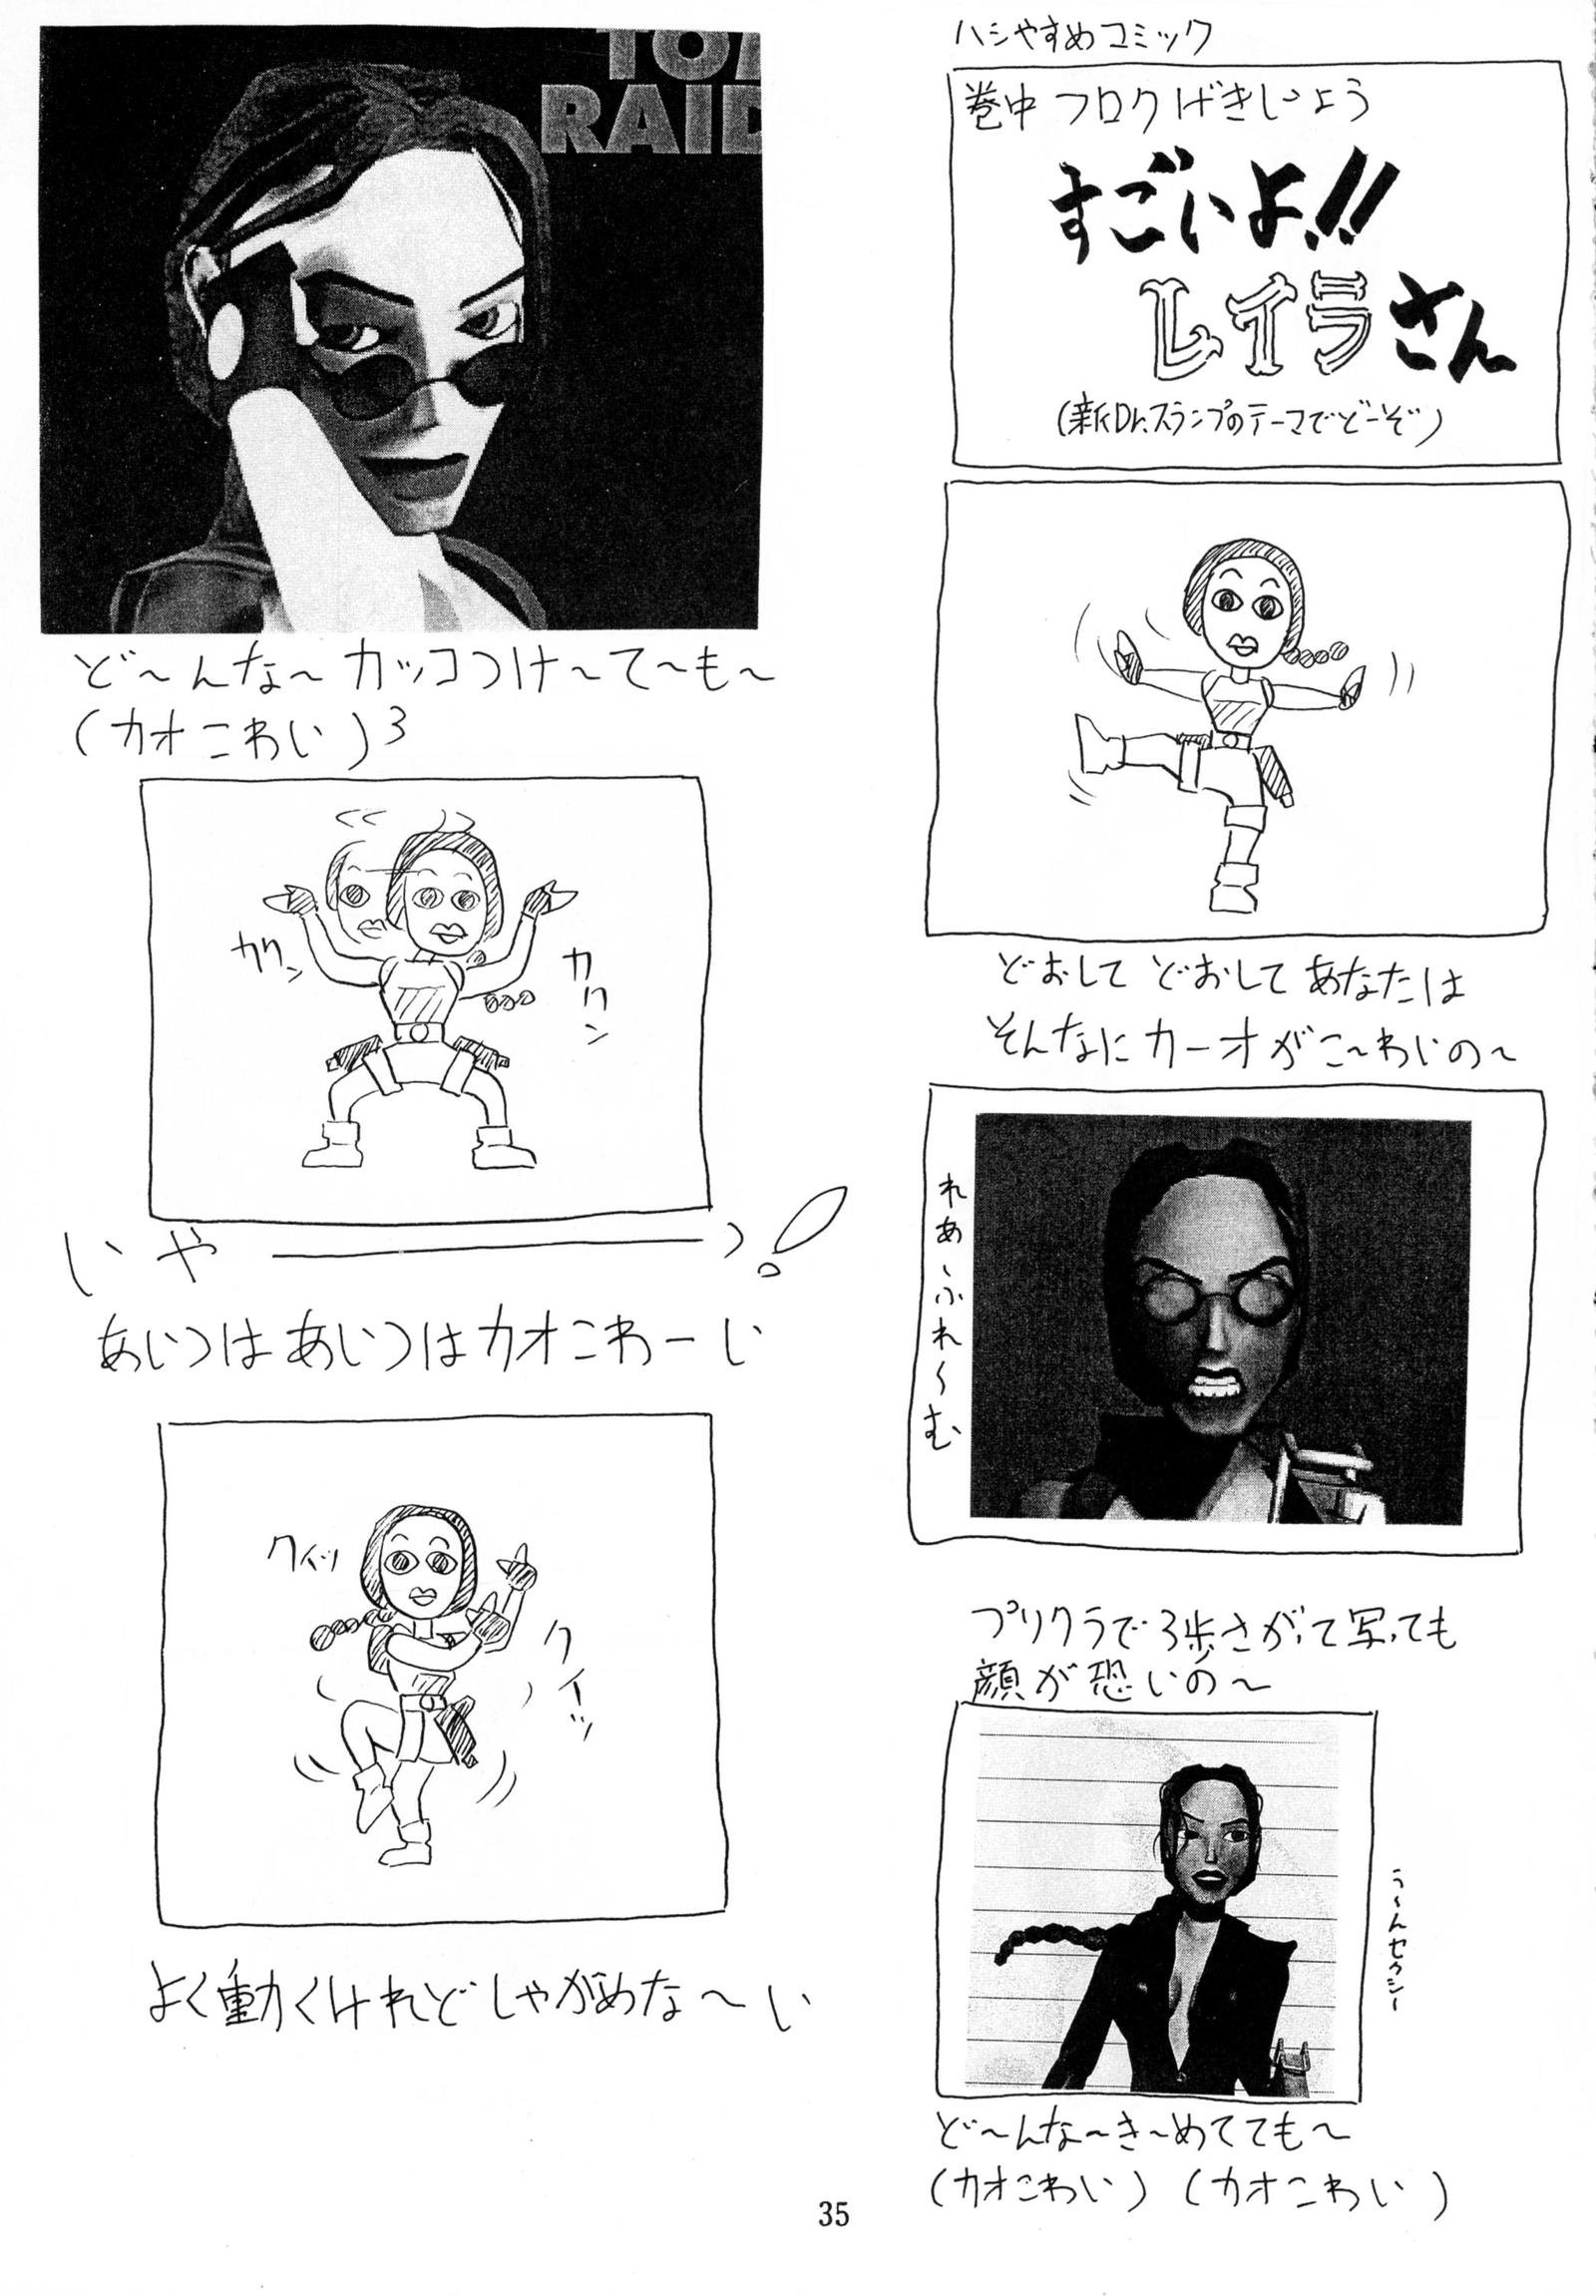 ハシやすめコミック
巻中フロクげきじょう
すごいよ!!
レイラさん
(新Dr.スランプのテーマでどーぞ)
どおして どおして あなたは
そんなにカーオがこ〜わいの〜
れあ〜ふれ〜む
プリクラで3歩さがって写っても
顔が恐いの〜
う〜んセクシー
ど〜んな〜き〜めてても〜
(カオこわい)(カオこわい)
TO
RAID
ど〜んな〜カッコつけ〜て〜も〜
(カオこわい)3
カクン
カクン
いやーーっ!
あいつはあいつはカオこわーい
クイッ
クイーッ
よく動くけれどしゃがめな〜い
35